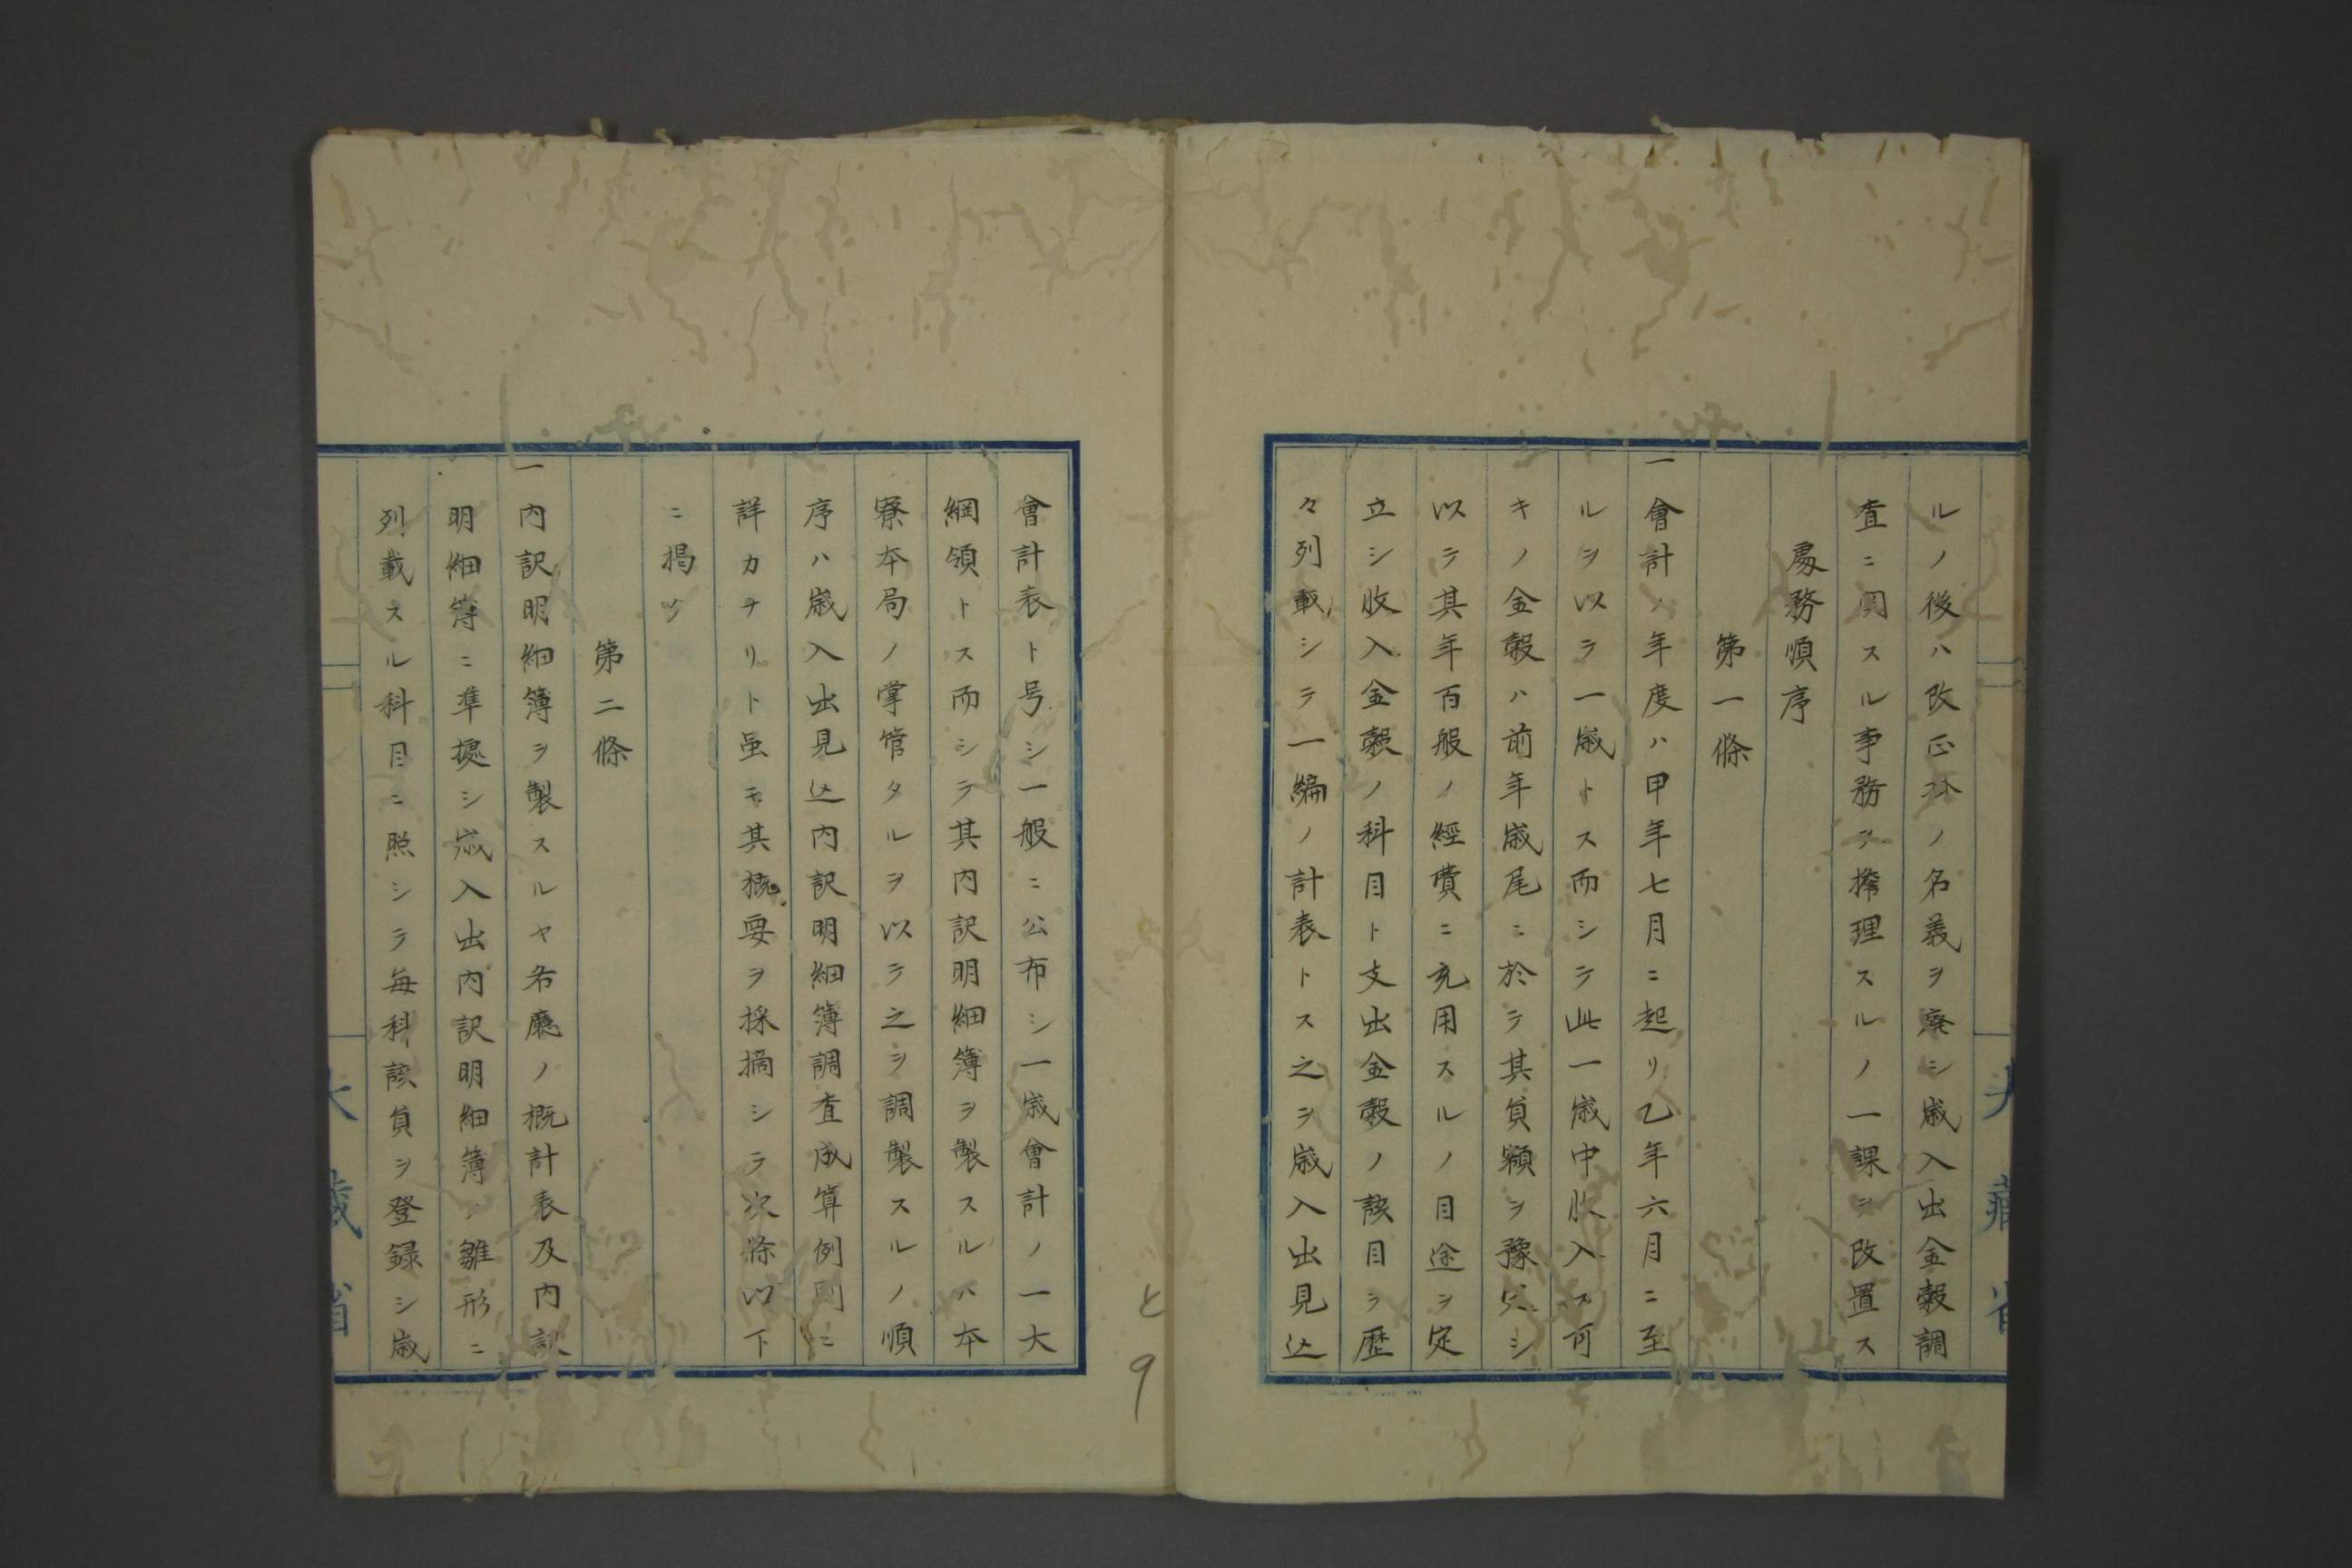 ルノ後ハ改正外ノ名義ヲ廃シ歳入出金穀調
査ニ関スル事務ヲ攩理スルノ一課ヲ改置ス
処務順序
第一條
一會計ノ年度ハ甲年七月ニ起リ乙年六月ニ至
ルヲ以テ一歳トス而シテ此一歳中收入ス可
キノ金穀ハ前年歳尾ニ於テ其員額ヲ豫算シ
以テ其年百般ノ經費ニ充用スルノ目途ヲ定
立シ收入金穀ノ科目ト支出金穀ノ該目ヲ歴
々列載シテ一編ノ計表トス之ヲ歳入出見込
會計表ト号シ一般ニ公布シ一歳會計ノ一大
綱領トス而シテ其内訳明細簿ヲ製スルハ本
寮本局ノ掌管タルヲ以テ之ヲ調製スルノ順
序ハ歳入出見込内訳明細簿調査成算例則ニ
詳カナリト虽モ其概要ヲ採摘シテ次條以下
ニ掲ク
第二條
一内訳明細簿ヲ製スルヤ各廳ノ概計表及内訳
明細簿ニ準據シ歳入出内訳明細簿ノ雛形ニ
列載スル科目ニ照シテ毎科該員ヲ登録シ歳
大藏省
大藏省
と9